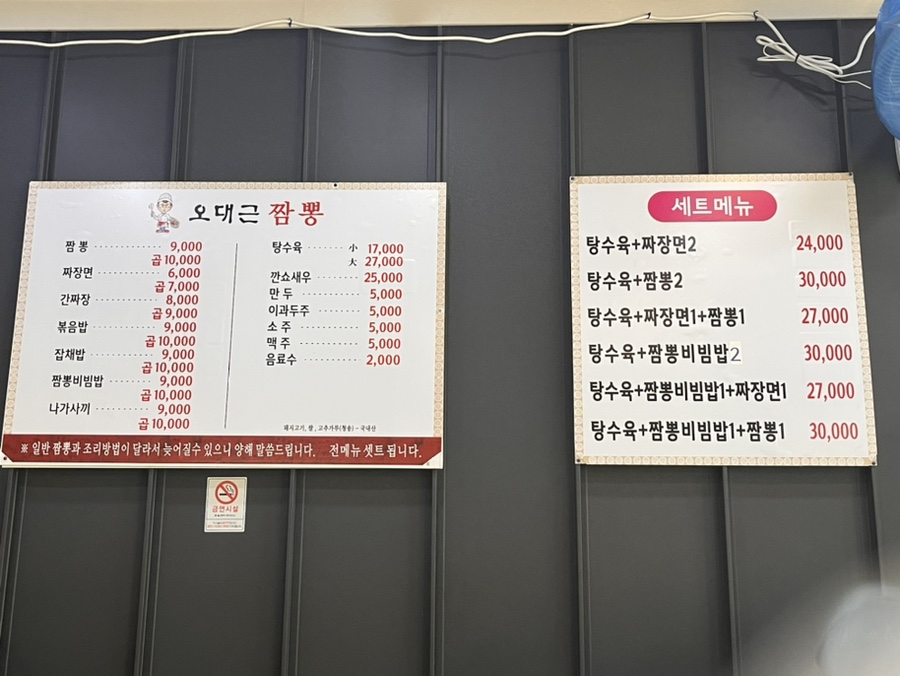 오대근 짬뽕
짬 뽕 ············ 9,000
곱 10,000
짜장면 ············ 6,000
곱 7,000
간짜장 ············ 8,000
곱 9,000
볶음밥 ············ 9,000
곱 10,000
잡채밥 ············ 9,000
곱 10,000
짬뽕비빔밥 ········ 9,000
곱 10,000
나가사끼 ·········· 9,000
곱 10,000
탕수육 ······ 小 17,000
大 27,000
깐쇼새우 ········ 25,000
만 두 ············ 5,000
이과두주 ·········· 5,000
소 주 ············ 5,000
맥 주 ············ 5,000
음료수 ············ 2,000
돼지고기, 쌀, 고추가루(청송) - 국내산
※ 일반 짬뽕과 조리방법이 달라서 늦어질수 있으니 양해 말씀드립니다. 전메뉴 셋트 됩니다.
세트메뉴
탕수육+짜장면2 24,000
탕수육+짬뽕2 30,000
탕수육+짜장면1+짬뽕1 27,000
탕수육+짬뽕비빔밥2 30,000
탕수육+짬뽕비빔밥1+짜장면1 27,000
탕수육+짬뽕비빔밥1+짬뽕1 30,000
금연시설